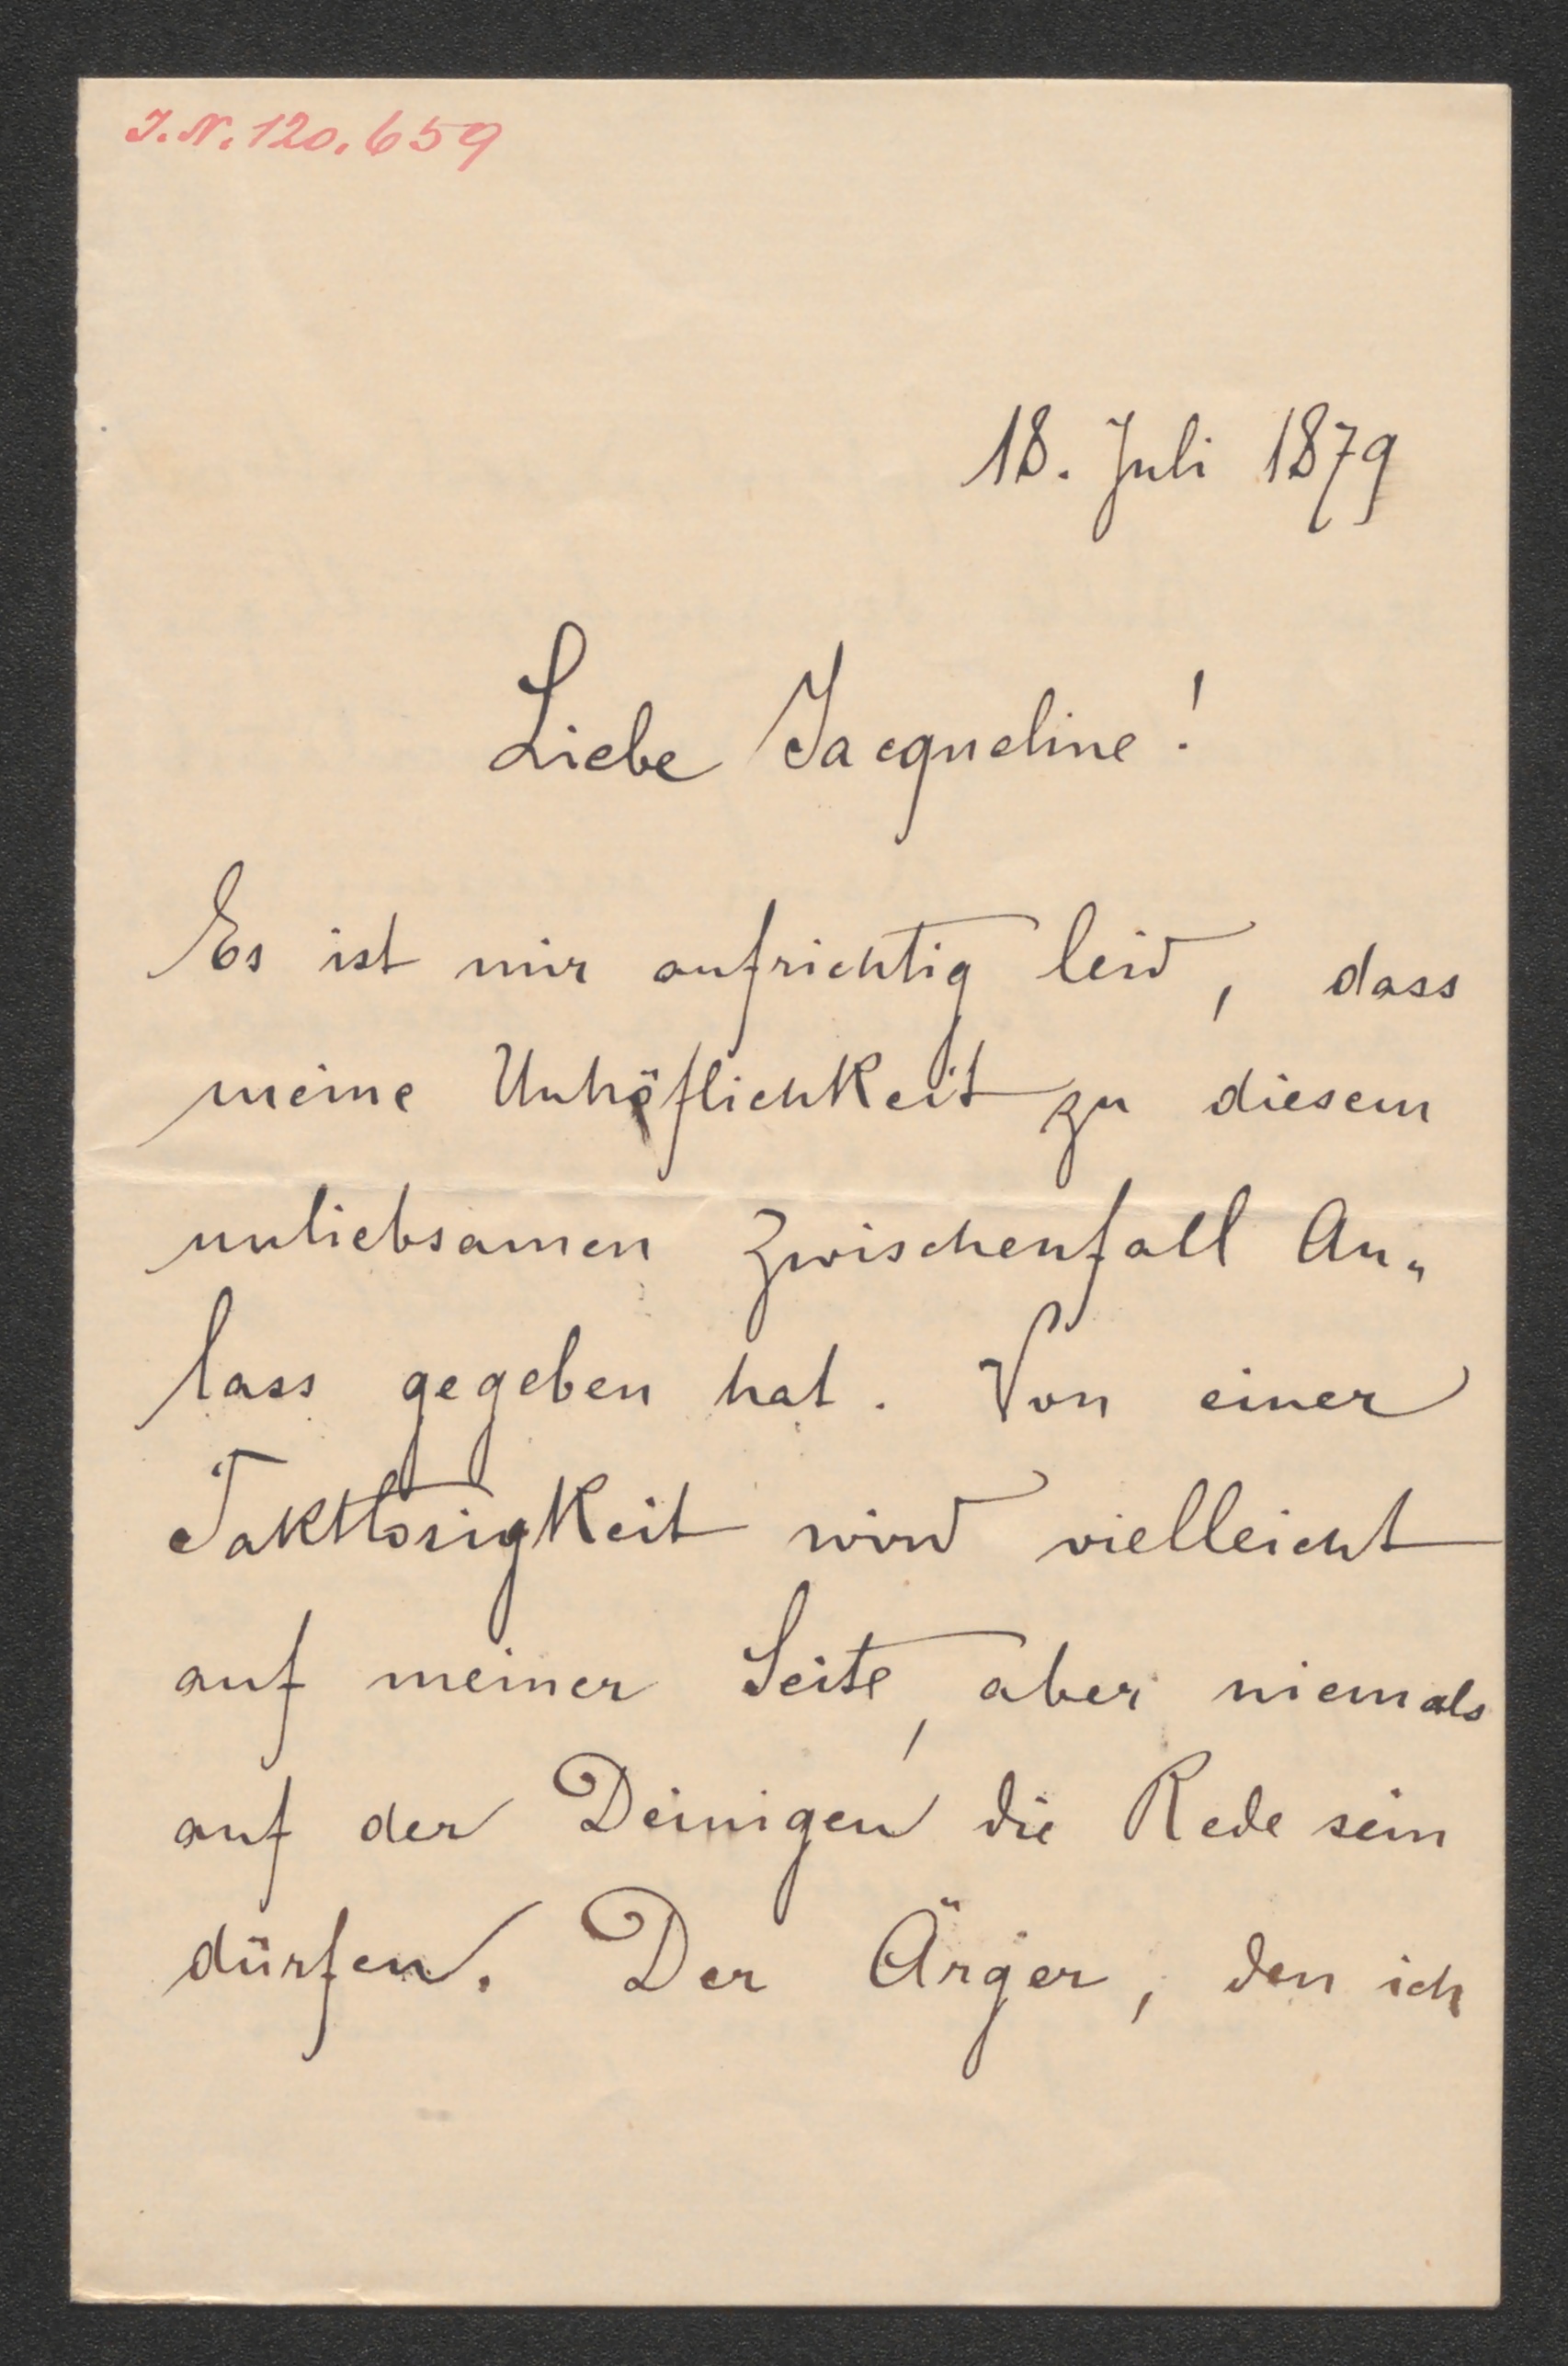 I.N. 120.659
18. Juli 1879
Liebe Jacqueline!
Es ist mir aufrichtig leid, dass
meine Unhöflichkeit zu diesem
unliebsamen Zwischenfall An„
lass gegeben hat. Von einer
Taktlosigkeit wird vielleicht
auf meiner Seite, aber niemals
auf der Deinigen die Rede sein
dürfen. Der Ärger, den ich